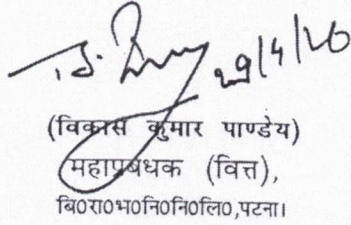 29/4/26
(विकास कुमार पाण्डेय)
महाप्रबंधक (वित्त),
बि0रा0भ0नि0नि0लि0,पटना।